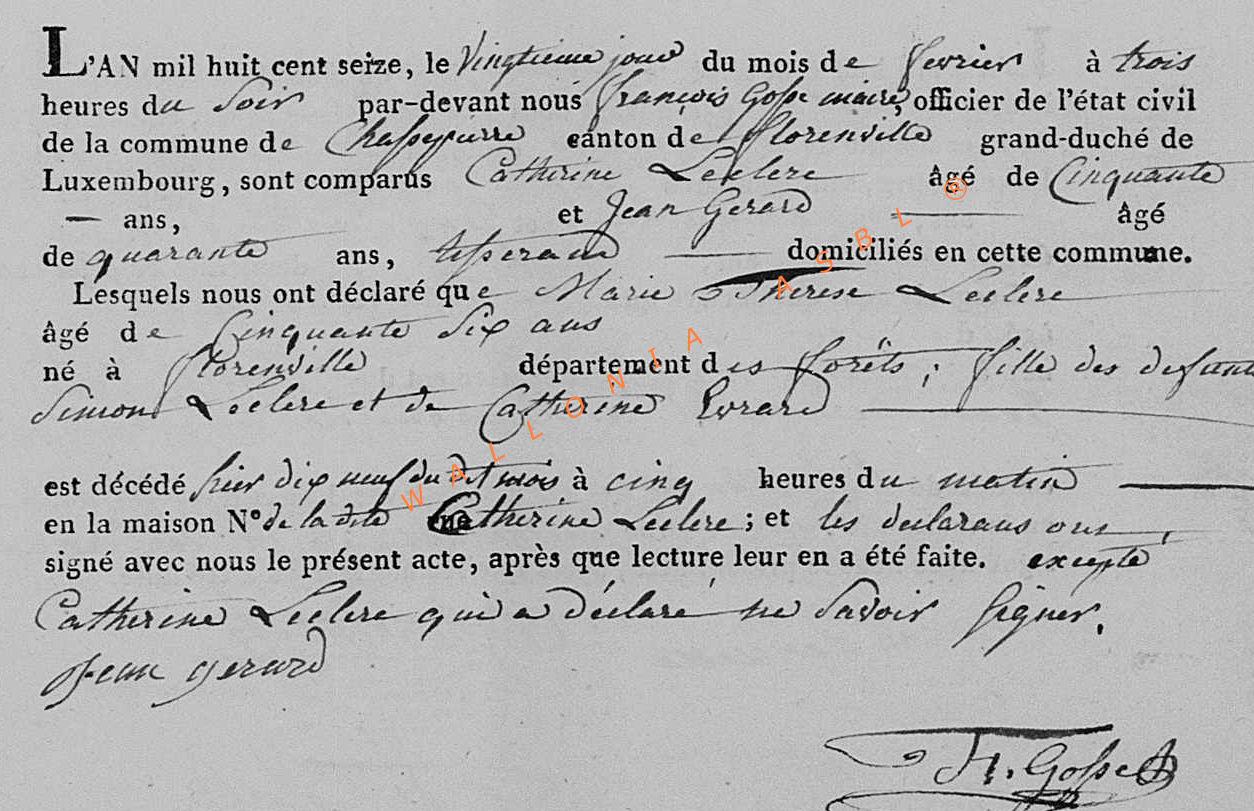 L'AN mil huit cent seize, le Vingtieme jour du mois de fevrier à trois
heures du Soir par-devant nous françois Gosse maire, officier de l'état civil
de la commune de Chassepierre canton de florenville grand-duché de
Luxembourg, sont comparus Catherine Leclere âgé de Cinquante
— ans, et Jean Gerard âgé
de quarante ans, tisserand domiciliés en cette commune.
Lesquels nous ont déclaré que Marie Therese Leclere
âgé de Cinquante Six ans
né à florenville département des forêts ; fille des defunt
Simon Leclere et de Catherine Evrard
est décédé hier dix neuf du dit mois à cinq heures du matin
en la maison N° de la dite Catherine Leclere ; et les declarans ont
signé avec nous le présent acte, après que lecture leur en a été faite. excepté
Catherine Leclere qui a déclaré ne Savoir Signer.
Jean gerard
WALLONIA ASBL ®